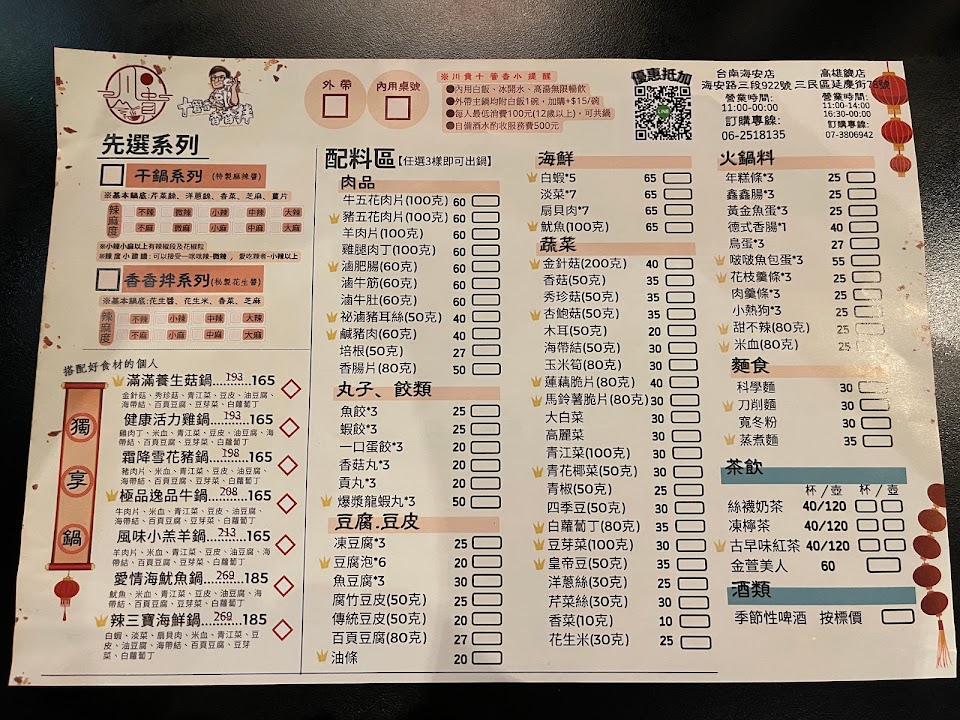 川貴
十香
外帶
內用桌號
※川貴十香香小提醒
●內用白飯、冰開水、高湯無限暢飲
●外帶主鍋均附白飯1碗，加購+$15/碗
●每人最低消費100元(12歲以上)，可共鍋
●自備酒水酌收服務費500元
優惠抵加
台南海安店
海安路三段922號
營業時間:
11:00-00:00
訂購專線:
06-2518135
高雄鐃店
三民區延慶街78號
營業時間:
11:00-14:00
16:30-00:00
訂購專線:
07-3806942
先選系列
干鍋系列(特製麻辣醬)
※基本鍋底:芹菜絲、洋蔥絲、香菜、芝麻、薑片
辣麻度
不辣 微辣 小辣 中辣 大辣
不麻 微麻 小麻 中麻 大麻
※小辣小麻以上有辣椒段及花椒粒
※辣度小建議:可以接受一咪咪辣-微辣，愛吃辣者-小辣以上
香香拌系列(秘製花生醬)
※基本鍋底:花生醬、花生米、香菜、芝麻
辣麻度
不辣 小辣 中辣 大辣
不麻 小麻 中麻 大麻
搭配好食材的個人
獨享鍋
滿滿養生菇鍋 193 165
金針菇、秀珍菇、青江菜、豆皮、油豆腐、
海帶結、百頁豆腐、豆芽菜、白蘿蔔丁
健康活力雞鍋 193 165
雞肉丁、米血、青江菜、豆皮、油豆腐、海
帶結、百頁豆腐、豆芽菜、白蘿蔔丁
霜降雪花豬鍋 198 165
豬肉片、米血、青江菜、豆皮、油豆腐、
海帶結、百頁豆腐、豆芽菜、白蘿蔔丁
極品逸品牛鍋 208 165
牛肉片、米血、青江菜、豆皮、油豆腐、
海帶結、百頁豆腐、豆芽菜、白蘿蔔丁
風味小羔羊鍋 213 165
羊肉片、米血、青江菜、豆皮、油豆腐、
海帶結、百頁豆腐、豆芽菜、白蘿蔔丁
愛情海魷魚鍋 269 185
魷魚、米血、青江菜、豆皮、油豆腐、海
帶結、百頁豆腐、豆芽菜、白蘿蔔丁
辣三寶海鮮鍋 269 185
白蝦、淡菜、扇貝肉、米血、青江菜、豆
皮、油豆腐、海帶結、百頁豆腐、豆芽
菜、白蘿蔔丁
配料區【任選3樣即可出鍋】
肉品
牛五花肉片(100克) 60
豬五花肉片(100克) 60
羊肉片(100克) 60
雞腿肉丁(100克) 60
滷肥腸(60克) 60
滷牛筋(60克) 60
滷牛肚(60克) 60
祕滷豬耳絲(50克) 40
鹹豬肉(60克) 40
培根(50克) 27
香腸片(80克) 50
丸子、餃類
魚餃*3 25
蝦餃*3 25
一口蛋餃*3 20
香菇丸*3 20
貢丸*3 20
爆漿龍蝦丸*3 50
豆腐.豆皮
凍豆腐*3 25
豆腐泡*6 20
魚豆腐*3 30
腐竹豆皮(50克) 25
傳統豆皮(50克) 20
百頁豆腐(80克) 27
油條 20
海鮮
白蝦*5 65
淡菜*7 65
扇貝肉*7 65
魷魚(100克) 65
蔬菜
金針菇(200克) 40
香菇(50克) 35
秀珍菇(50克) 35
杏鮑菇(50克) 35
木耳(50克) 20
海帶結(50克) 30
玉米筍(80克) 30
蓮藕脆片(80克) 40
馬鈴薯脆片(80克) 30
大白菜 30
高麗菜 30
青江菜(100克) 30
青花椰菜(50克) 30
青椒(50克) 25
四季豆(50克) 30
白蘿蔔丁(80克) 35
豆芽菜(100克) 30
皇帝豆(50克) 35
洋蔥絲(30克) 25
芹菜絲(30克) 30
香菜(10克) 10
花生米(30克) 25
火鍋料
年糕條*3 25
鑫鑫腸*3 25
黃金魚蛋*3 25
德式香腸*1 40
鳥蛋*3 27
啵啵魚包蛋*3 55
花枝羹條*3 25
肉羹條*3 25
小熱狗*3 25
甜不辣(80克) 25
米血(80克) 25
麵食
科學麵 30
刀削麵 30
寬冬粉 30
蒸煮麵 35
茶飲
杯/壺 杯/壺
絲襪奶茶 40/120
凍檸茶 40/120
古早味紅茶 40/120
金萱美人 60
酒類
季節性啤酒 按標價